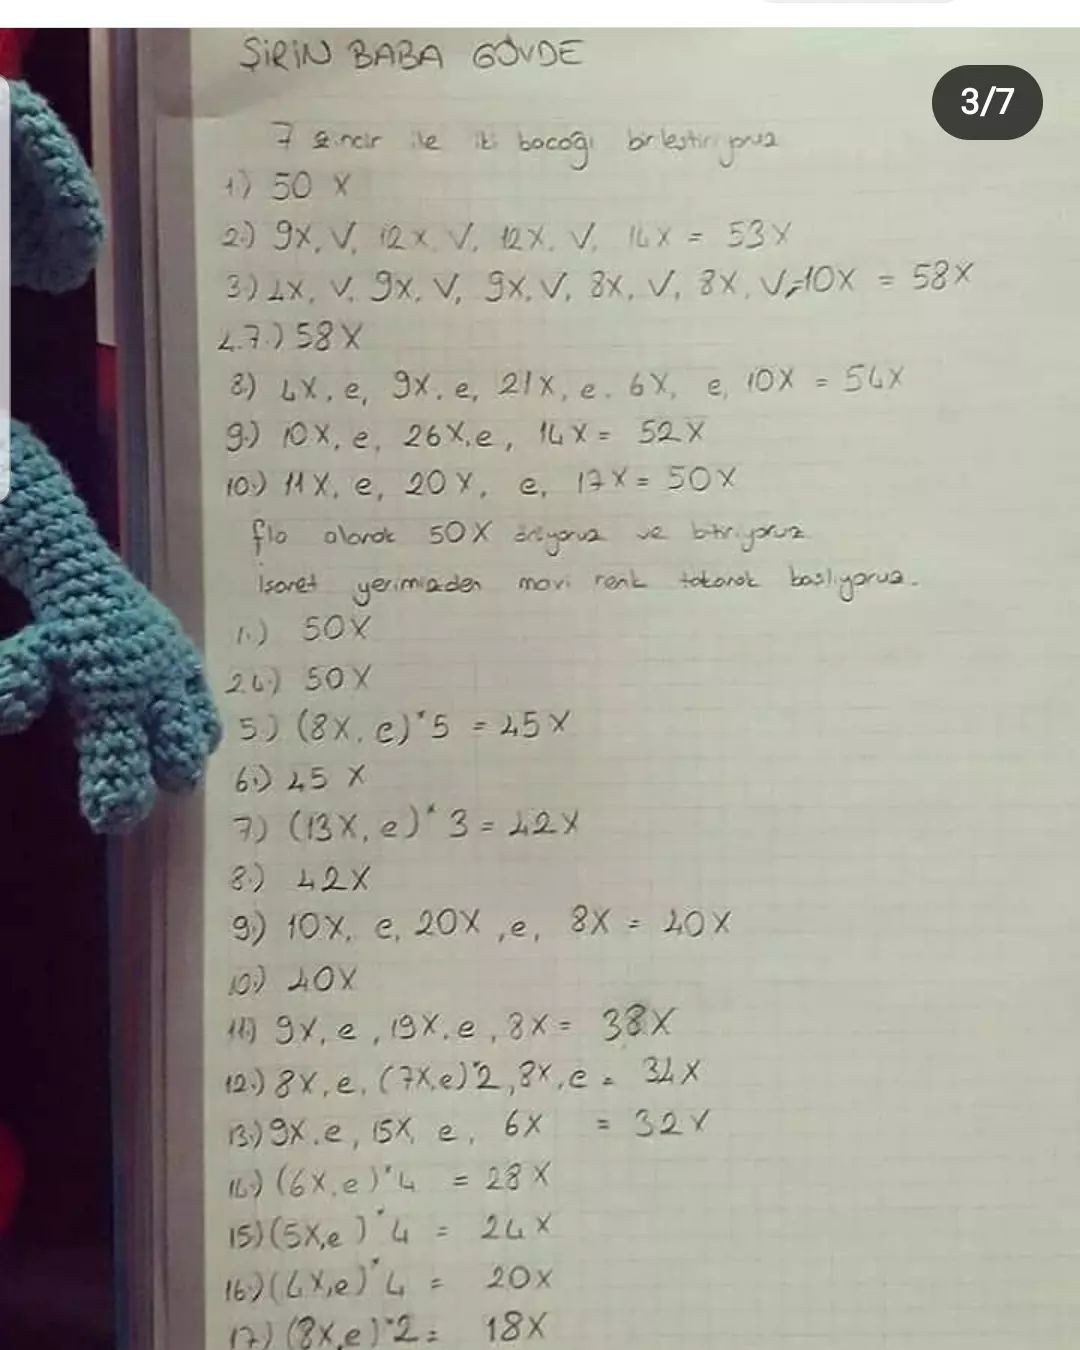 3/7
ŞİRİN BABA GÖVDE
7 zincir ile iki bacağı birleştiriyoruz
1) 50 X
2.) 9X, V, 12X, V, 12X, V, 14X = 53X
3.) 4X, V, 9X, V, 9X, V, 8X, V, 8X, V, 10X = 58X
4.7.) 58X
8) 4X, e, 9X, e, 21X, e, 6X, e, 10X = 54X
9.) 10X, e, 26X, e, 14X = 52X
10.) 11X, e, 20X, e, 17X = 50X
flo olarak 50X örüyoruz ve bitiriyoruz
İşaret yerimizden mavi renk takarak başlıyoruz.
1.) 50X
2.4.) 50X
5.) (8X, e)*5 = 45X
6.) 45 X
7) (13X, e)*3 = 42X
8.) 42X
9.) 10X, e, 20X, e, 8X = 40X
10.) 40X
11.) 9X, e, 19X, e, 8X = 38X
12.) 8X, e, (7X,e)*2, 8X, e = 34X
13.) 9X, e, 15X, e, 6X = 32X
14.) (6X, e)*4 = 28X
15) (5X,e)*4 = 24X
16.) (4X,e)*4 = 20X
17.) (8X,e)*2 = 18X